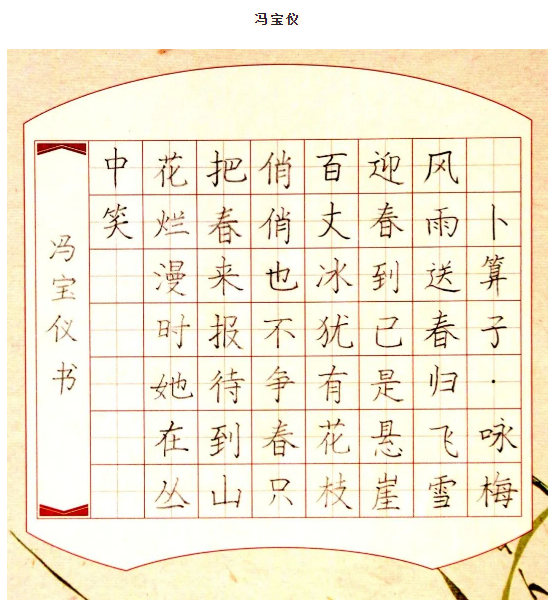 冯宝仪
卜算子·咏梅
风雨送春归飞雪
迎春到已是悬崖
百丈冰犹有花枝
俏俏也不争春只
把春来报待到山
花烂漫时她在丛
中笑
冯宝仪书